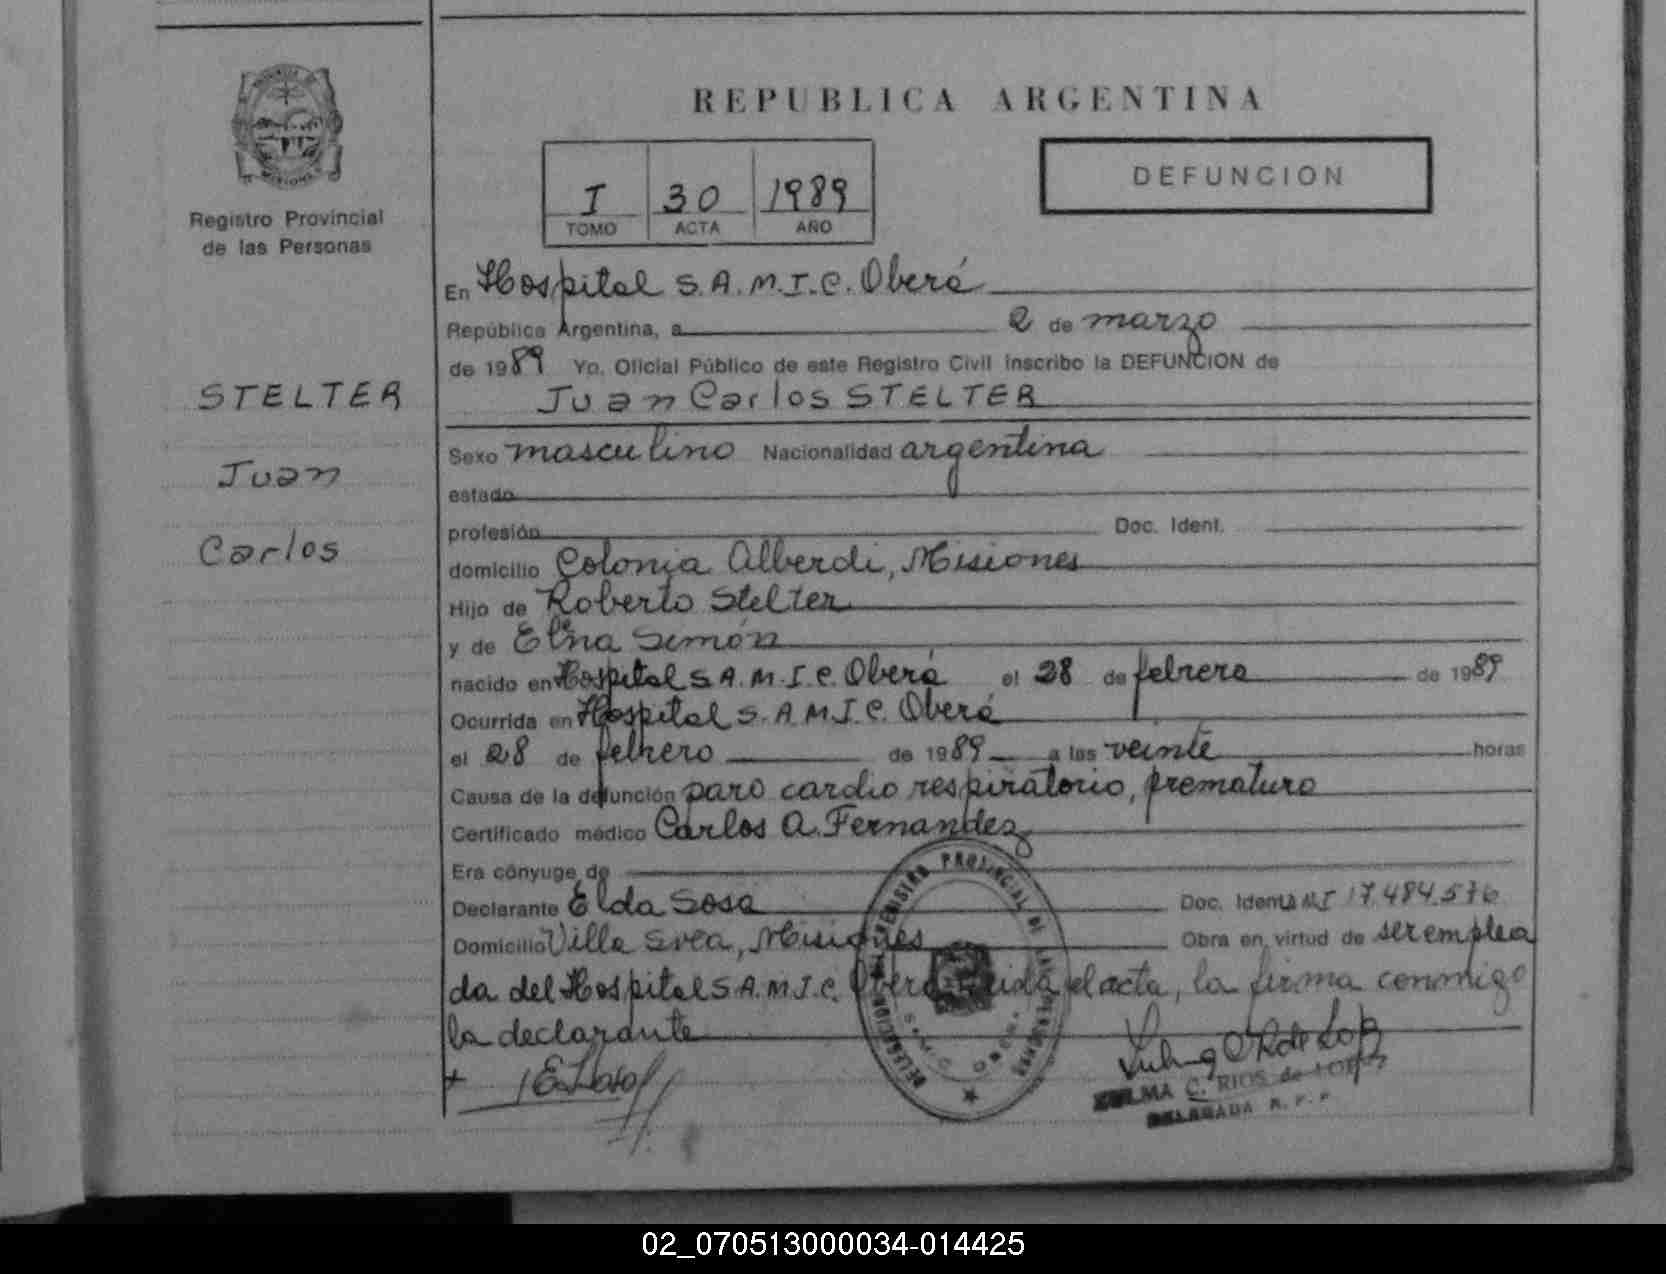 REPUBLICA ARGENTINA
I 30 1989
TOMO ACTA AÑO
DEFUNCION
Registro Provincial
de las Personas
STELTER
Juan
Carlos
En Hospital S.A.M.I.C. Oberá
República Argentina, a 2 de marzo
de 1989 Yo, Oficial Público de este Registro Civil inscribo la DEFUNCION de
Juan Carlos STELTER
Sexo masculino Nacionalidad argentina
estado
profesión Doc. Ident.
domicilio Colonia Alberdi, Misiones
Hijo de Roberto Stelter
y de Elna Simón
nacido en Hospital S.A.M.I.C. Oberá el 28 de febrero de 1989
Ocurrida en Hospital S.A.M.I.C. Oberá
el 28 de febrero de 1989 a las veinte horas
Causa de la defunción paro cardio respiratorio, prematuro
Certificado médico Carlos A. Fernandez
Era cónyuge de
Declarante Elda Sosa Doc. Ident. 17.484.576
Domicilio Villa Svea, Misiones Obra en virtud de ser emplea
da del Hospital S.A.M.I.C. Oberá el acta, la firma conmigo
la declarante
DELEGACION REGISTRO PROVINCIAL DE LAS PERSONAS
ZULMA C. RIOS de LOPEZ
DELEGADA R.P.P.
02_070513000034-014425